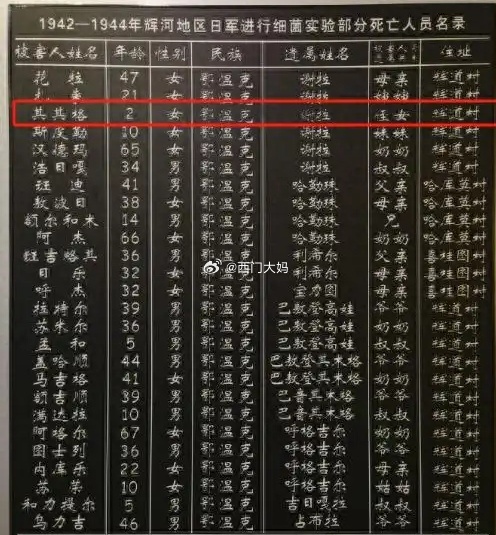 1942—1944年辉河地区日军进行细菌实验部分死亡人员名录
被害人姓名 年龄 性别 民族 遗属姓名 被害人 住址
花拉 47 女 鄂温克 谢拉 母亲 辉道村
扎来 21 女 鄂温克 谢拉 辉道村
其其格 2 女 鄂温克 谢拉 侄女 辉道村
斯皮勒 10 女 鄂温克 谢拉 妹妹 辉道村
汉德玛 65 女 鄂温克 谢拉 奶奶 辉道村
浩日嘎 34 男 鄂温克 谢拉 叔叔 辉道村
班迪 41 男 鄂温克 哈勒珠 父亲 哈库莫村
敖波日 38 女 鄂温克 哈勒珠 母亲 哈库莫村
额尔和木 14 男 鄂温克 哈勒珠 兄 哈库莫村
阿杰 66 女 鄂温克 哈勒珠 奶奶 哈库莫村
吉格其 36 男 鄂温克 利希尔 父亲 喜桂图村
日乐 32 女 鄂温克 利希尔 母亲 喜桂图村
呼杰 32 女 鄂温克 宝力图 母亲 喜桂图村
拉特尔 39 男 鄂温克 巴敖登高娃 爷爷 辉道村
苏米尔 36 女 鄂温克 巴敖登高娃 奶奶 辉道村
孟和 5 男 鄂温克 巴敖登高娃 叔叔 辉道村
盖哈顺 44 男 鄂温克 巴敖登其木格 爷爷 辉道村
马吉格 41 女 鄂温克 巴敖登其木格 奶奶 辉道村
额吉顺 39 男 鄂温克 巴音其木格 爷爷 辉道村
满达拉 10 男 鄂温克 巴音其木格 叔叔 辉道村
阿格尔 67 女 鄂温克 呼格吉尔 奶奶 辉道村
图士列 36 男 鄂温克 呼格吉尔 爷爷 辉道村
内库乐 22 女 鄂温克 呼格吉尔 母亲 辉道村
苏荣 10 女 鄂温克 呼格吉尔 姑姑 辉道村
和力提尔 5 男 鄂温克 吉日嘎拉 叔叔 辉道村
乌力吉 46 男 鄂温克 占布拉 爷爷 辉道村
@西门大妈